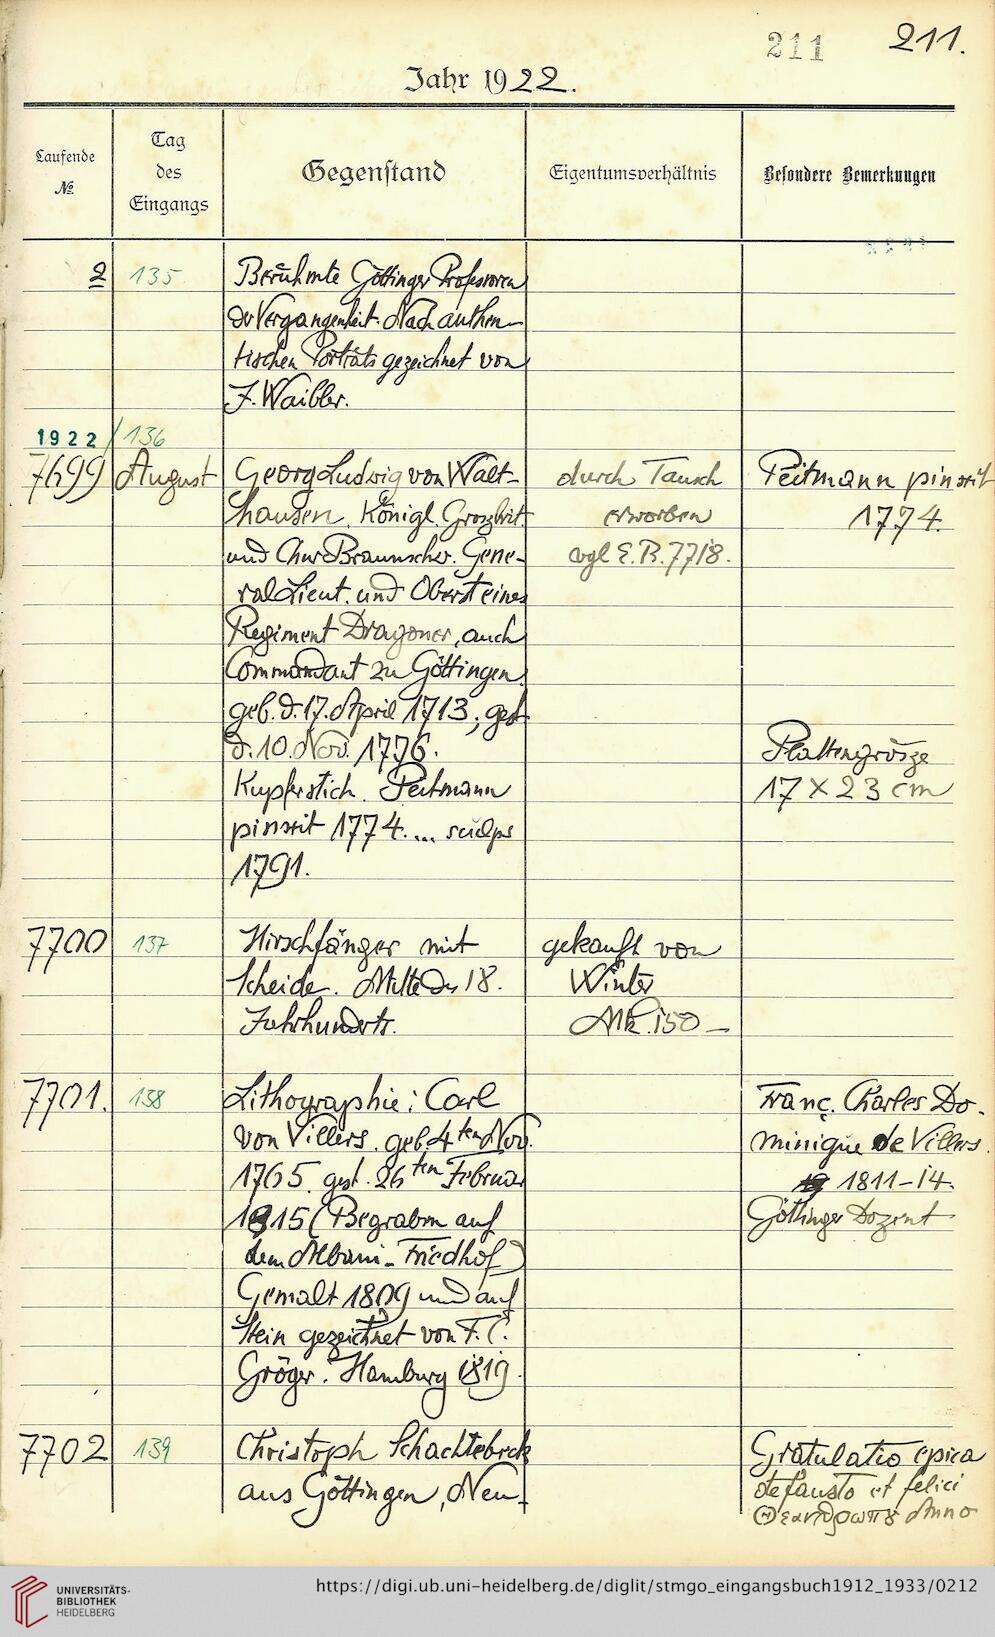 211
211.
Jahr 1922.
Laufende
№
Tag
des
Eingangs
Gegenstand
Eigentumsverhältnis
Besondere Bemerkungen
2
135
Berühmte Göttinger Professoren
der Vergangenheit. Nach authen-
tischen Porträts gezeichnet von
J. Waibler.
1922/136
7699
August
Georg Ludwig von Walt-
hausen, Königl. Groszbrit.
und Chur Braunschw. Gene-
ral Lieut. und Oberst eines
Regiment Dragoner, auch
Commandant zu Göttingen.
geb. d. 17. April 1713; gest.
d. 10. Nov. 1776.
Kupferstich. Peitmann
pinxit 1774. ... sculps
1791.
durch Tausch
erworben
vgl E.B. 7718.
Peitmann pinxit
1774.
Plattengrösze
17 x 23 cm
7700
137
Hirschfänger mit
Scheide. Mitte des 18.
Jahrhunderts.
gekauft von
Winter
Mk. 150 -
7701.
138
Lithographie: Carl
von Villers. geb. 4ten Nov.
1765. gest. 26ten Februar
1815 (Begraben auf
dem Albani-Friedhof)
Gemalt 1809 und auf
Stein gezeichnet von F. C.
Gröger. Hamburg 1819.
Franç. Charles Do-
minique de Villers.
1811-14.
Göttinger Dozent
7702
139
Christoph Schachtebeck
aus Göttingen, Neu-
Gratulatio epica
de fausto et felici
Θεανθρωπȣ Anno
UNIVERSITÄTS-
BIBLIOTHEK
HEIDELBERG
https://digi.ub.uni-heidelberg.de/diglit/stmgo_eingangsbuch1912_1933/0212